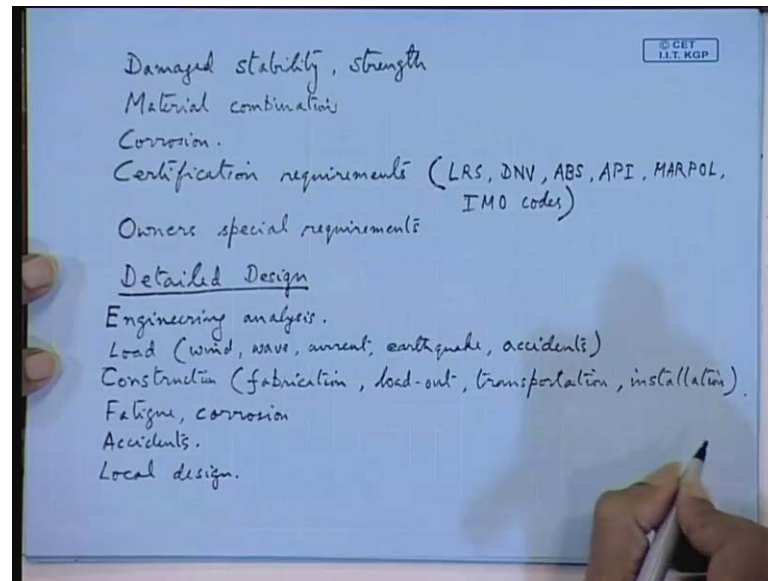 © CET
I.I.T. KGP
Damaged stability, strength
Material combinations
Corrosion.
Certification requirements (LRS, DNV, ABS, API, MARPOL,
IMO codes)
Owners special requirements
Detailed Design
Engineering analysis.
Load (wind, wave, current, earthquake, accidents)
Construction (fabrication, load-out, transportation, installation).
Fatigue, corrosion
Accidents.
Local design.